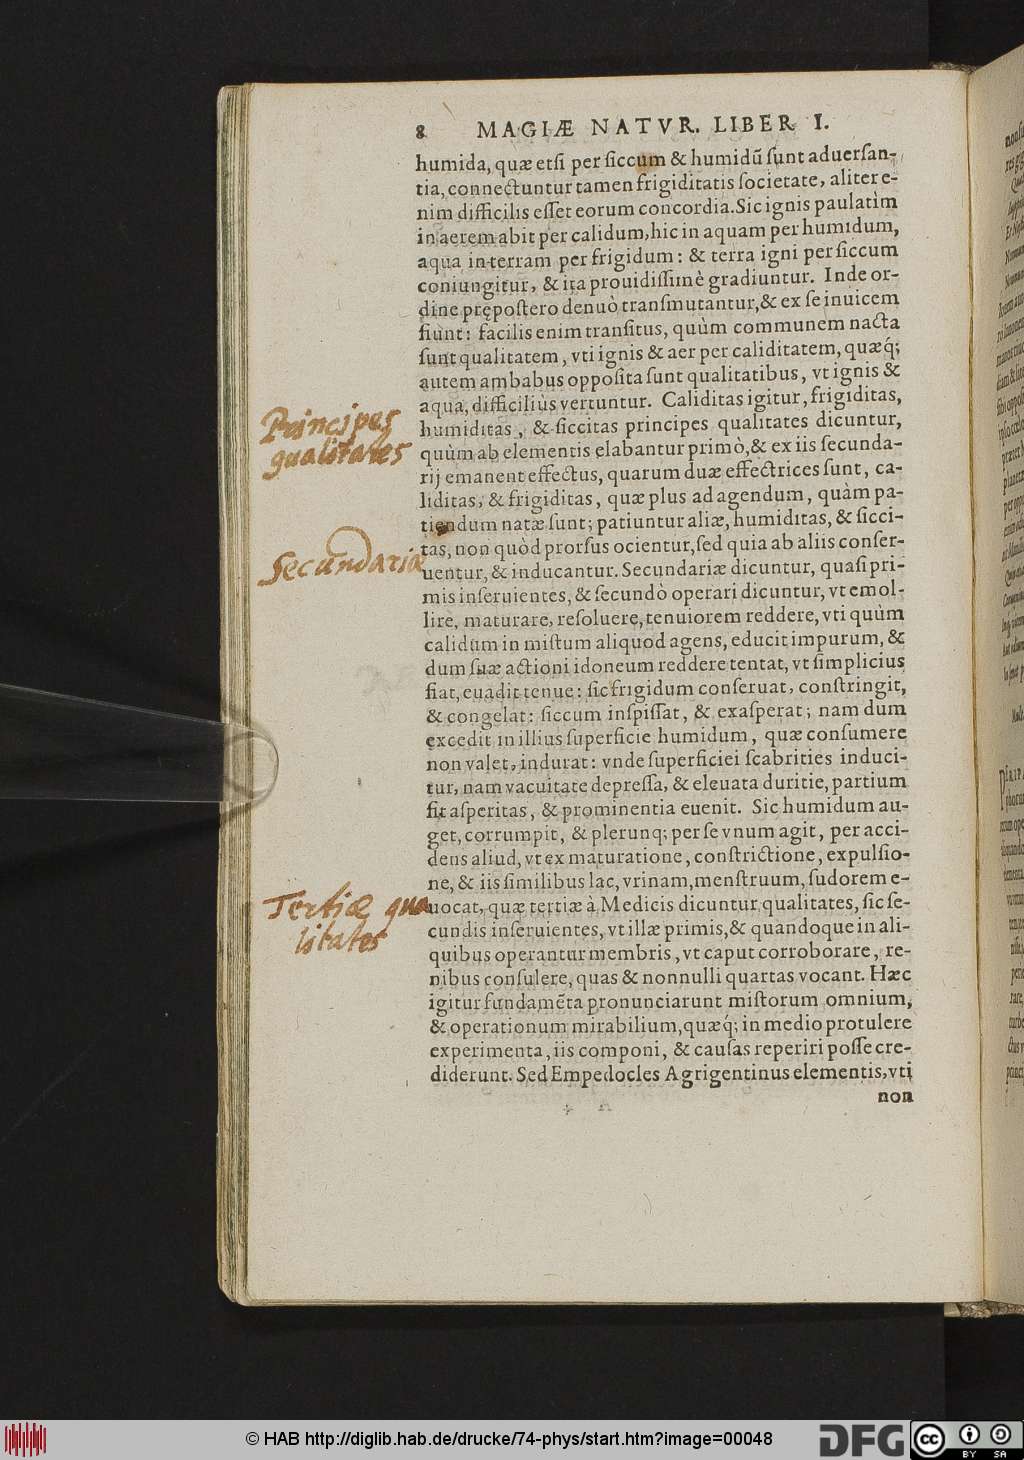 8 MAGIÆ NATVR. LIBER I.
humida, quæ etſi per ſiccum & humidũ ſunt aduerſan-
tia, connectuntur tamen frigiditatis ſocietate, aliter e-
nim difficilis eſſet eorum concordia. Sic ignis paulatìm
in aerem abit per calidum, hic in aquam per humidum,
aqua in terram per frigidum: & terra igni per ſiccum
coniungitur, & ita prouidiſſimè gradiuntur. Inde or-
dine prępoſtero denuò tranſmutantur, & ex ſe inuicem
fiunt: facilis enim tranſitus, quùm communem nacta
ſunt qualitatem, vti ignis & aer per caliditatem, quæq́;
autem ambabus oppoſita ſunt qualitatibus, vt ignis &
aqua, difficiliùs vertuntur. Caliditas igitur, frigiditas,
Principes
humiditas, & ſiccitas principes qualitates dicuntur,
qualitates
quùm ab elementis elabantur primò, & ex iis ſecunda-
rij emanent effectus, quarum duæ effectrices ſunt, ca-
liditas, & frigiditas, quæ plus ad agendum, quàm pa-
tiendum natæ ſunt; patiuntur aliæ, humiditas, & ſicci-
tas, non quòd prorſus ocientur, ſed quia ab aliis conſer-
Secundariæ
uentur, & inducantur. Secundariæ dicuntur, quaſi pri-
mis inſeruientes, & ſecundò operari dicuntur, vt emol-
lire, maturare, reſoluere, tenuiorem reddere, vti quùm
calidum in miſtum aliquod agens, educit impurum, &
dum ſuæ actioni idoneum reddere tentat, vt ſimplicius
fiat, euadit tenue: ſic frigidum conſeruat, conſtringit,
& congelat: ſiccum inſpiſſat, & exaſperat; nam dum
excedit in illius ſuperficie humidum, quæ conſumere
non valet, indurat: vnde ſuperficiei ſcabrities induci-
tur, nam vacuitate depreſſa, & eleuata duritie, partium
fit aſperitas, & prominentia euenit. Sic humidum au-
get, corrumpit, & plerunq; per ſe vnum agit, per acci-
dens aliud, vt ex maturatione, conſtrictione, expulſio-
ne, & iis ſimilibus lac, vrinam, menſtruum, ſudorem e-
Tertiæ qua
uocat, quæ tertiæ à Medicis dicuntur qualitates, ſic ſe-
litates
cundis inſeruientes, vt illæ primis, & quandoque in ali-
quibus operantur membris, vt caput corroborare, re-
nibus conſulere, quas & nonnulli quartas vocant. Hæc
igitur fundamẽta pronunciarunt miſtorum omnium,
& operationum mirabilium, quæq́; in medio protulere
experimenta, iis componi, & cauſas reperiri poſſe cre-
diderunt. Sed Empedocles Agrigentinus elementis, vti
non
© HAB http://diglib.hab.de/drucke/74-phys/start.htm?image=00048
DFG
cc
BY SA